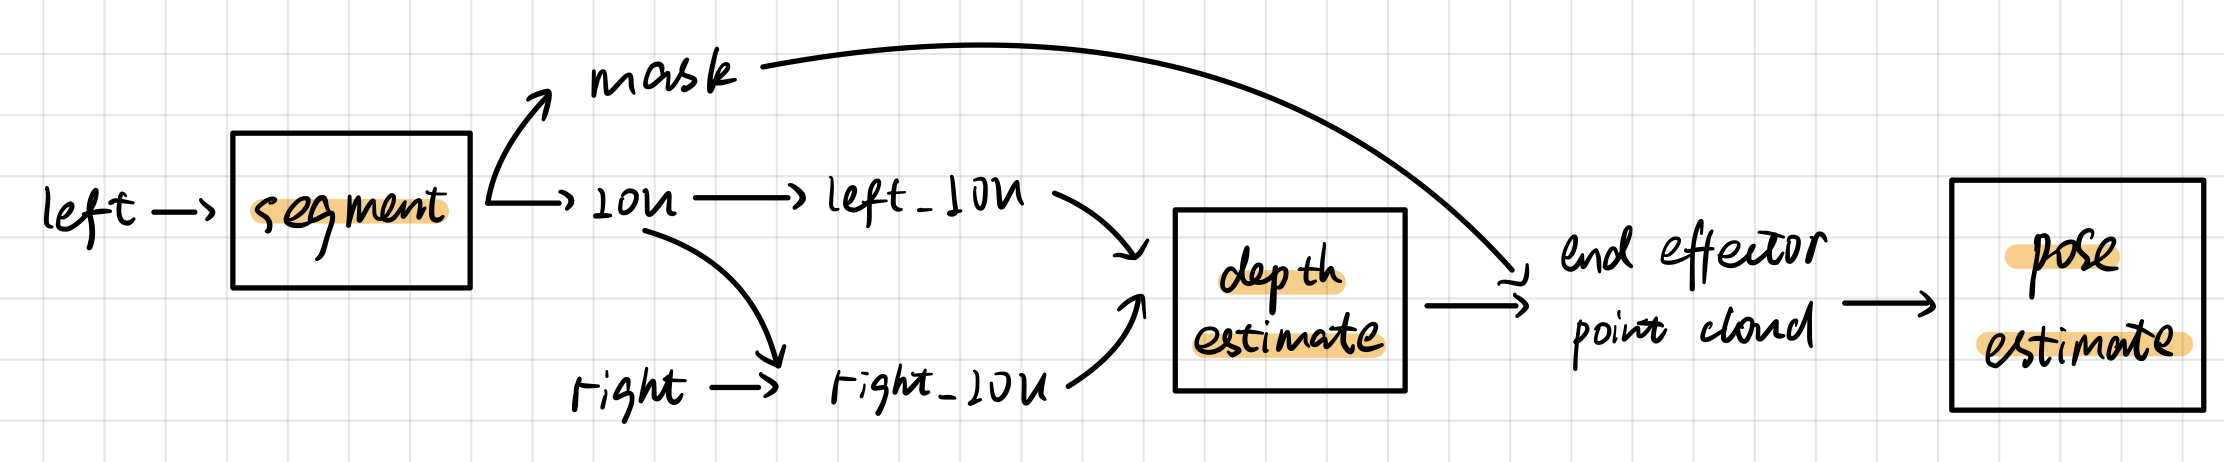 mask
left
segment
IOU
left_IOU
right
right_IOU
depth
estimate
end effector
point cloud
pose
estimate